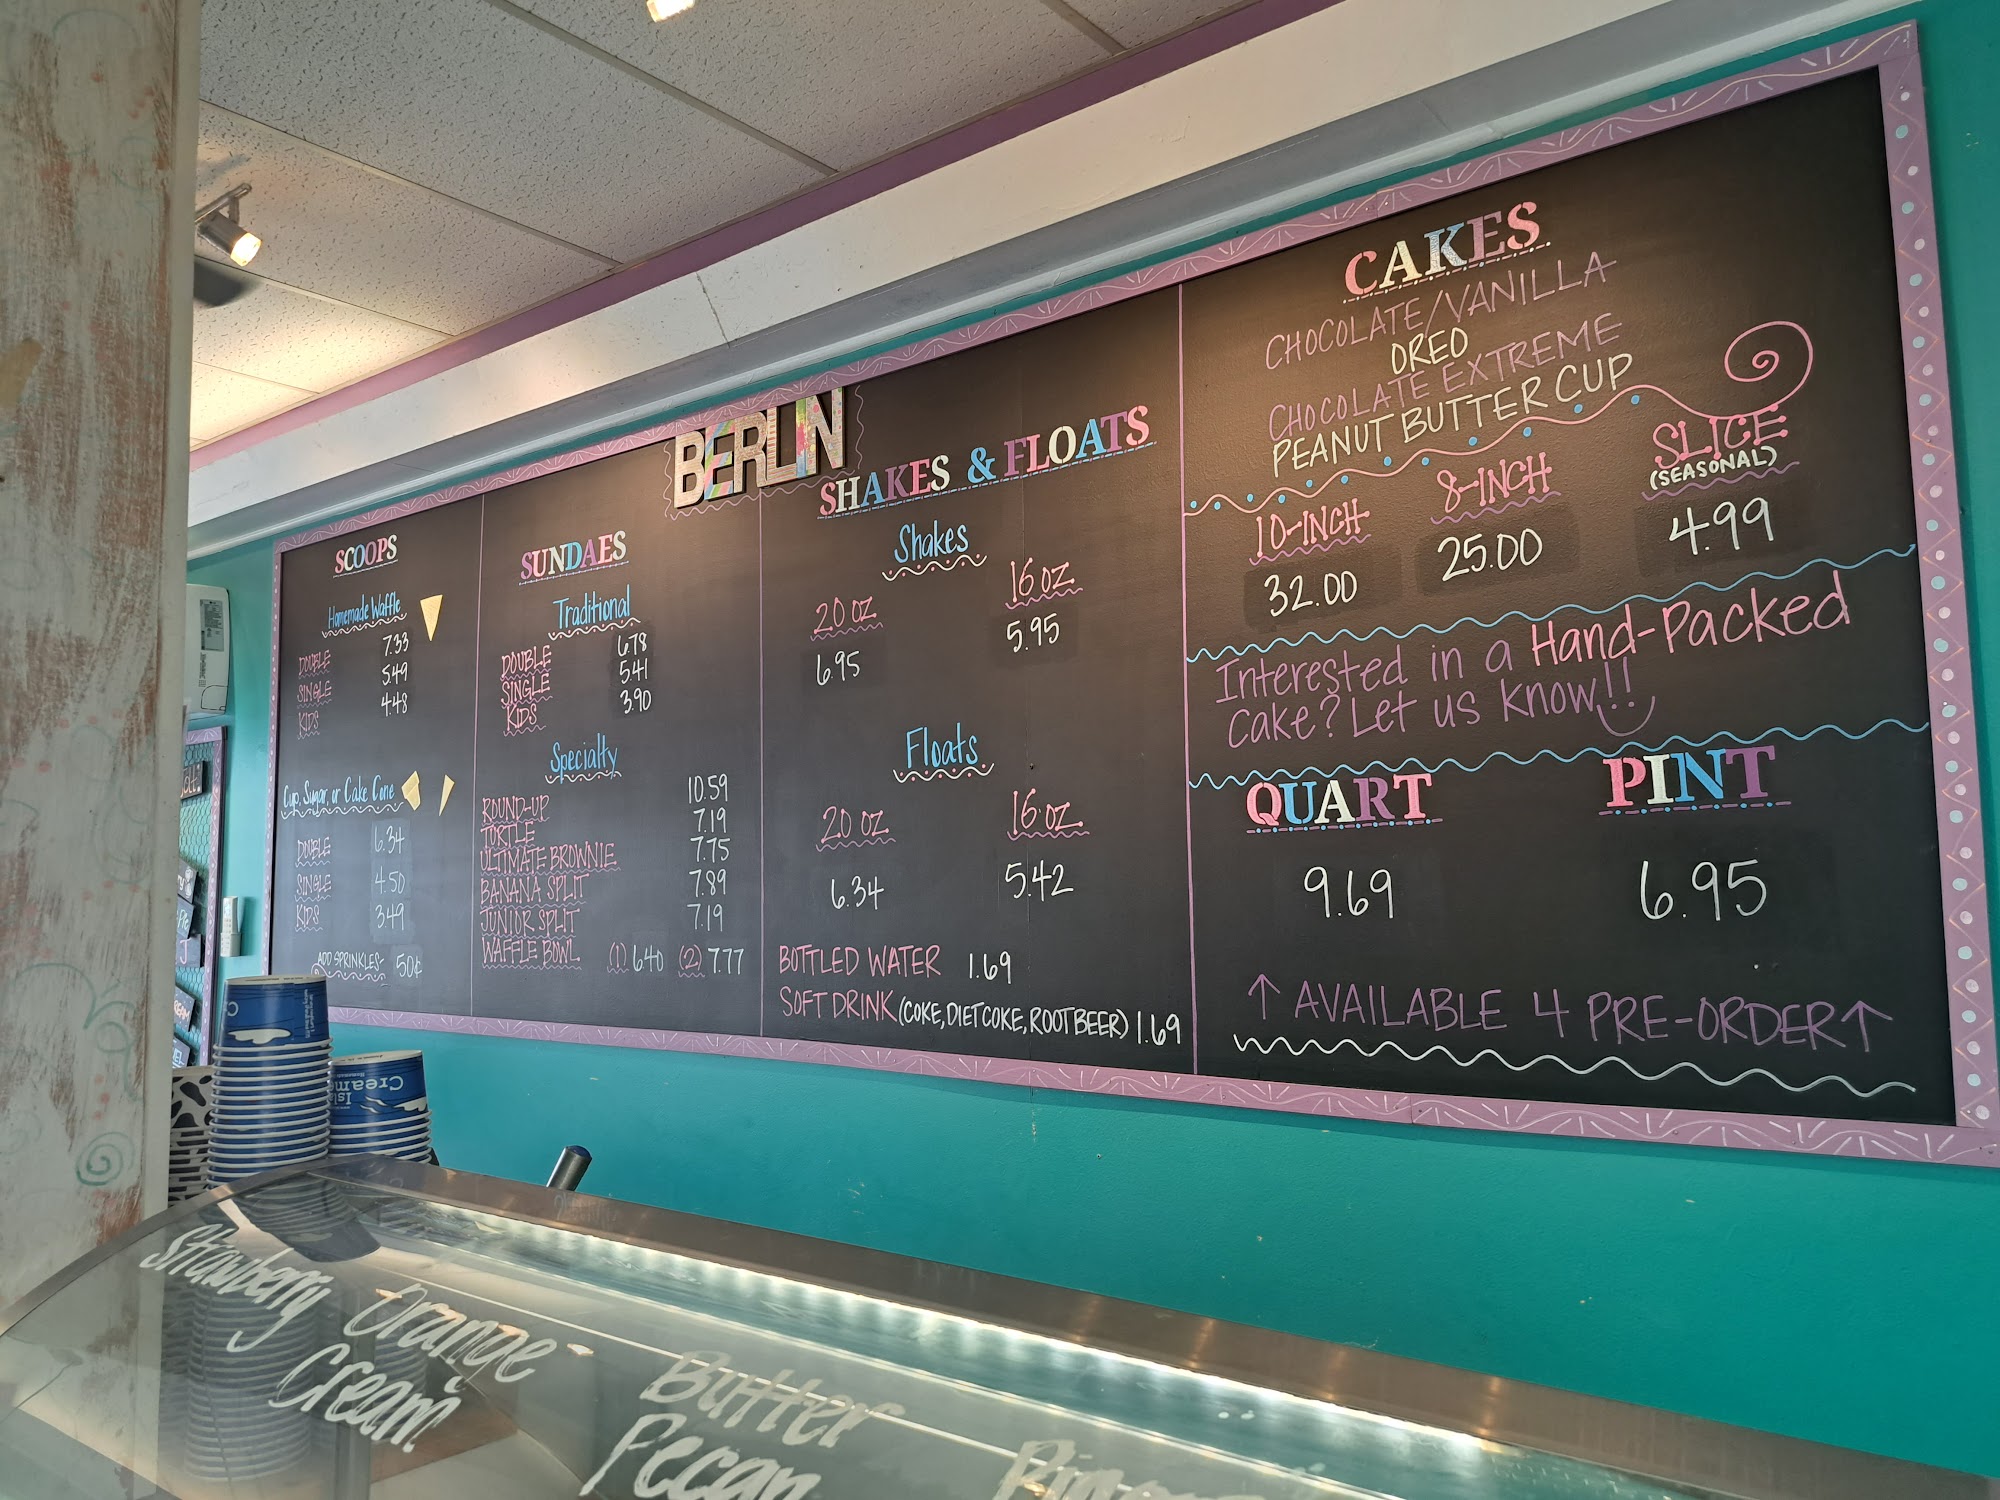 BERLIN
SCOOPS
Homemade Waffle
DOUBLE 7.33
SINGLE 5.49
KIDS 4.48
Cup, Sugar, or Cake Cone
DOUBLE 6.34
SINGLE 4.50
KIDS 3.49
ADD SPRINKLES- 50¢
SUNDAES
Traditional
DOUBLE 6.78
SINGLE 5.41
KIDS 3.90
Specialty
ROUND-UP 10.59
TURTLE 7.19
ULTIMATE BROWNIE 7.75
BANANA SPLIT 7.89
JUNIOR SPLIT 7.19
WAFFLE BOWL (1) 6.40 (2) 7.77
SHAKES & FLOATS
Shakes
20 OZ 16 OZ
6.95 5.95
Floats
20 OZ 16 OZ
6.34 5.42
BOTTLED WATER 1.69
SOFT DRINK (COKE, DIET COKE, ROOT BEER) 1.69
CAKES
CHOCOLATE/VANILLA
OREO
CHOCOLATE EXTREME
PEANUT BUTTER CUP
10-INCH 8-INCH SLICE
(SEASONAL)
32.00 25.00 4.99
Interested in a Hand-Packed
Cake? Let us know!!
QUART PINT
9.69 6.95
↑ AVAILABLE 4 PRE-ORDER ↑
Strawberry
Orange
Cream
Butter
Pecan